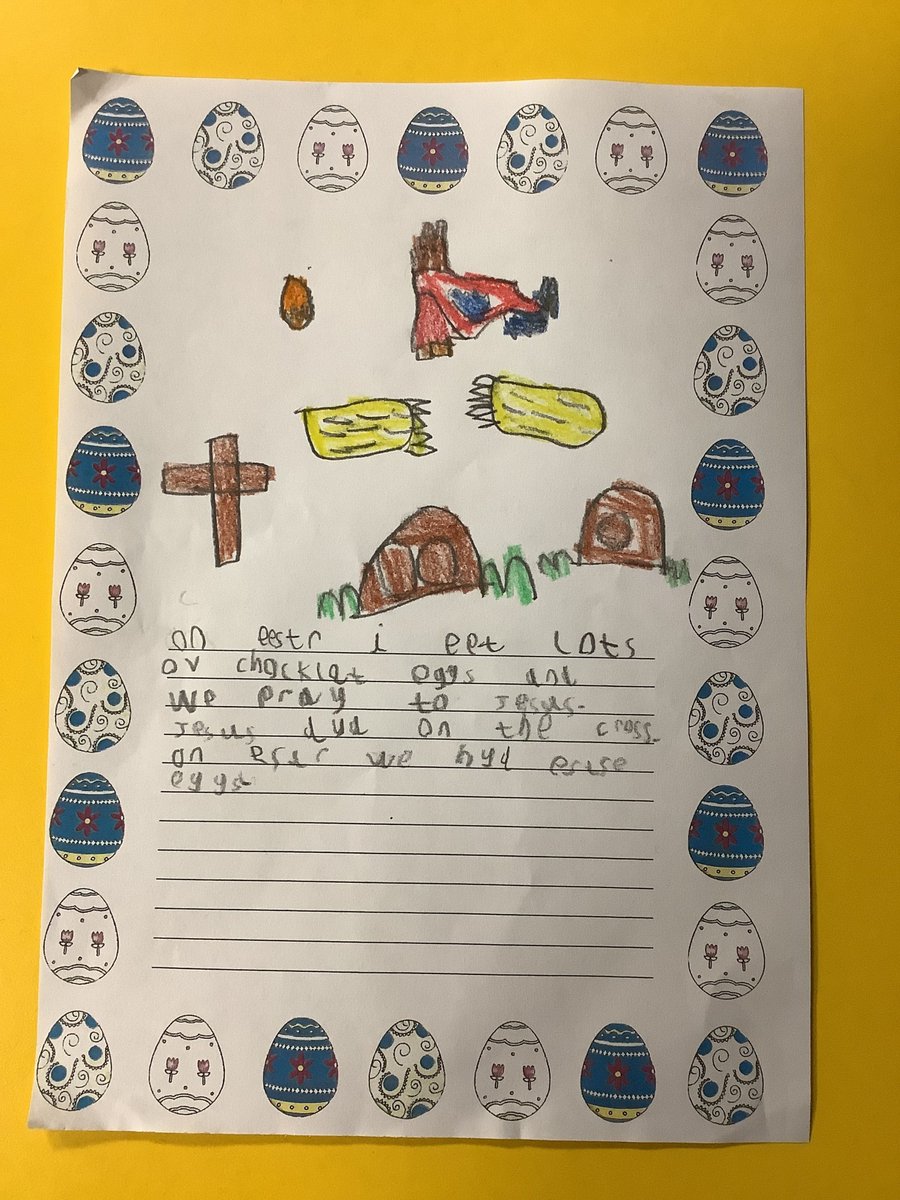 on eestr i eet lots
ov chocklat eggs and
we pray to Jesus.
Jesus dyd on the cross.
on esır we hyd
eggs